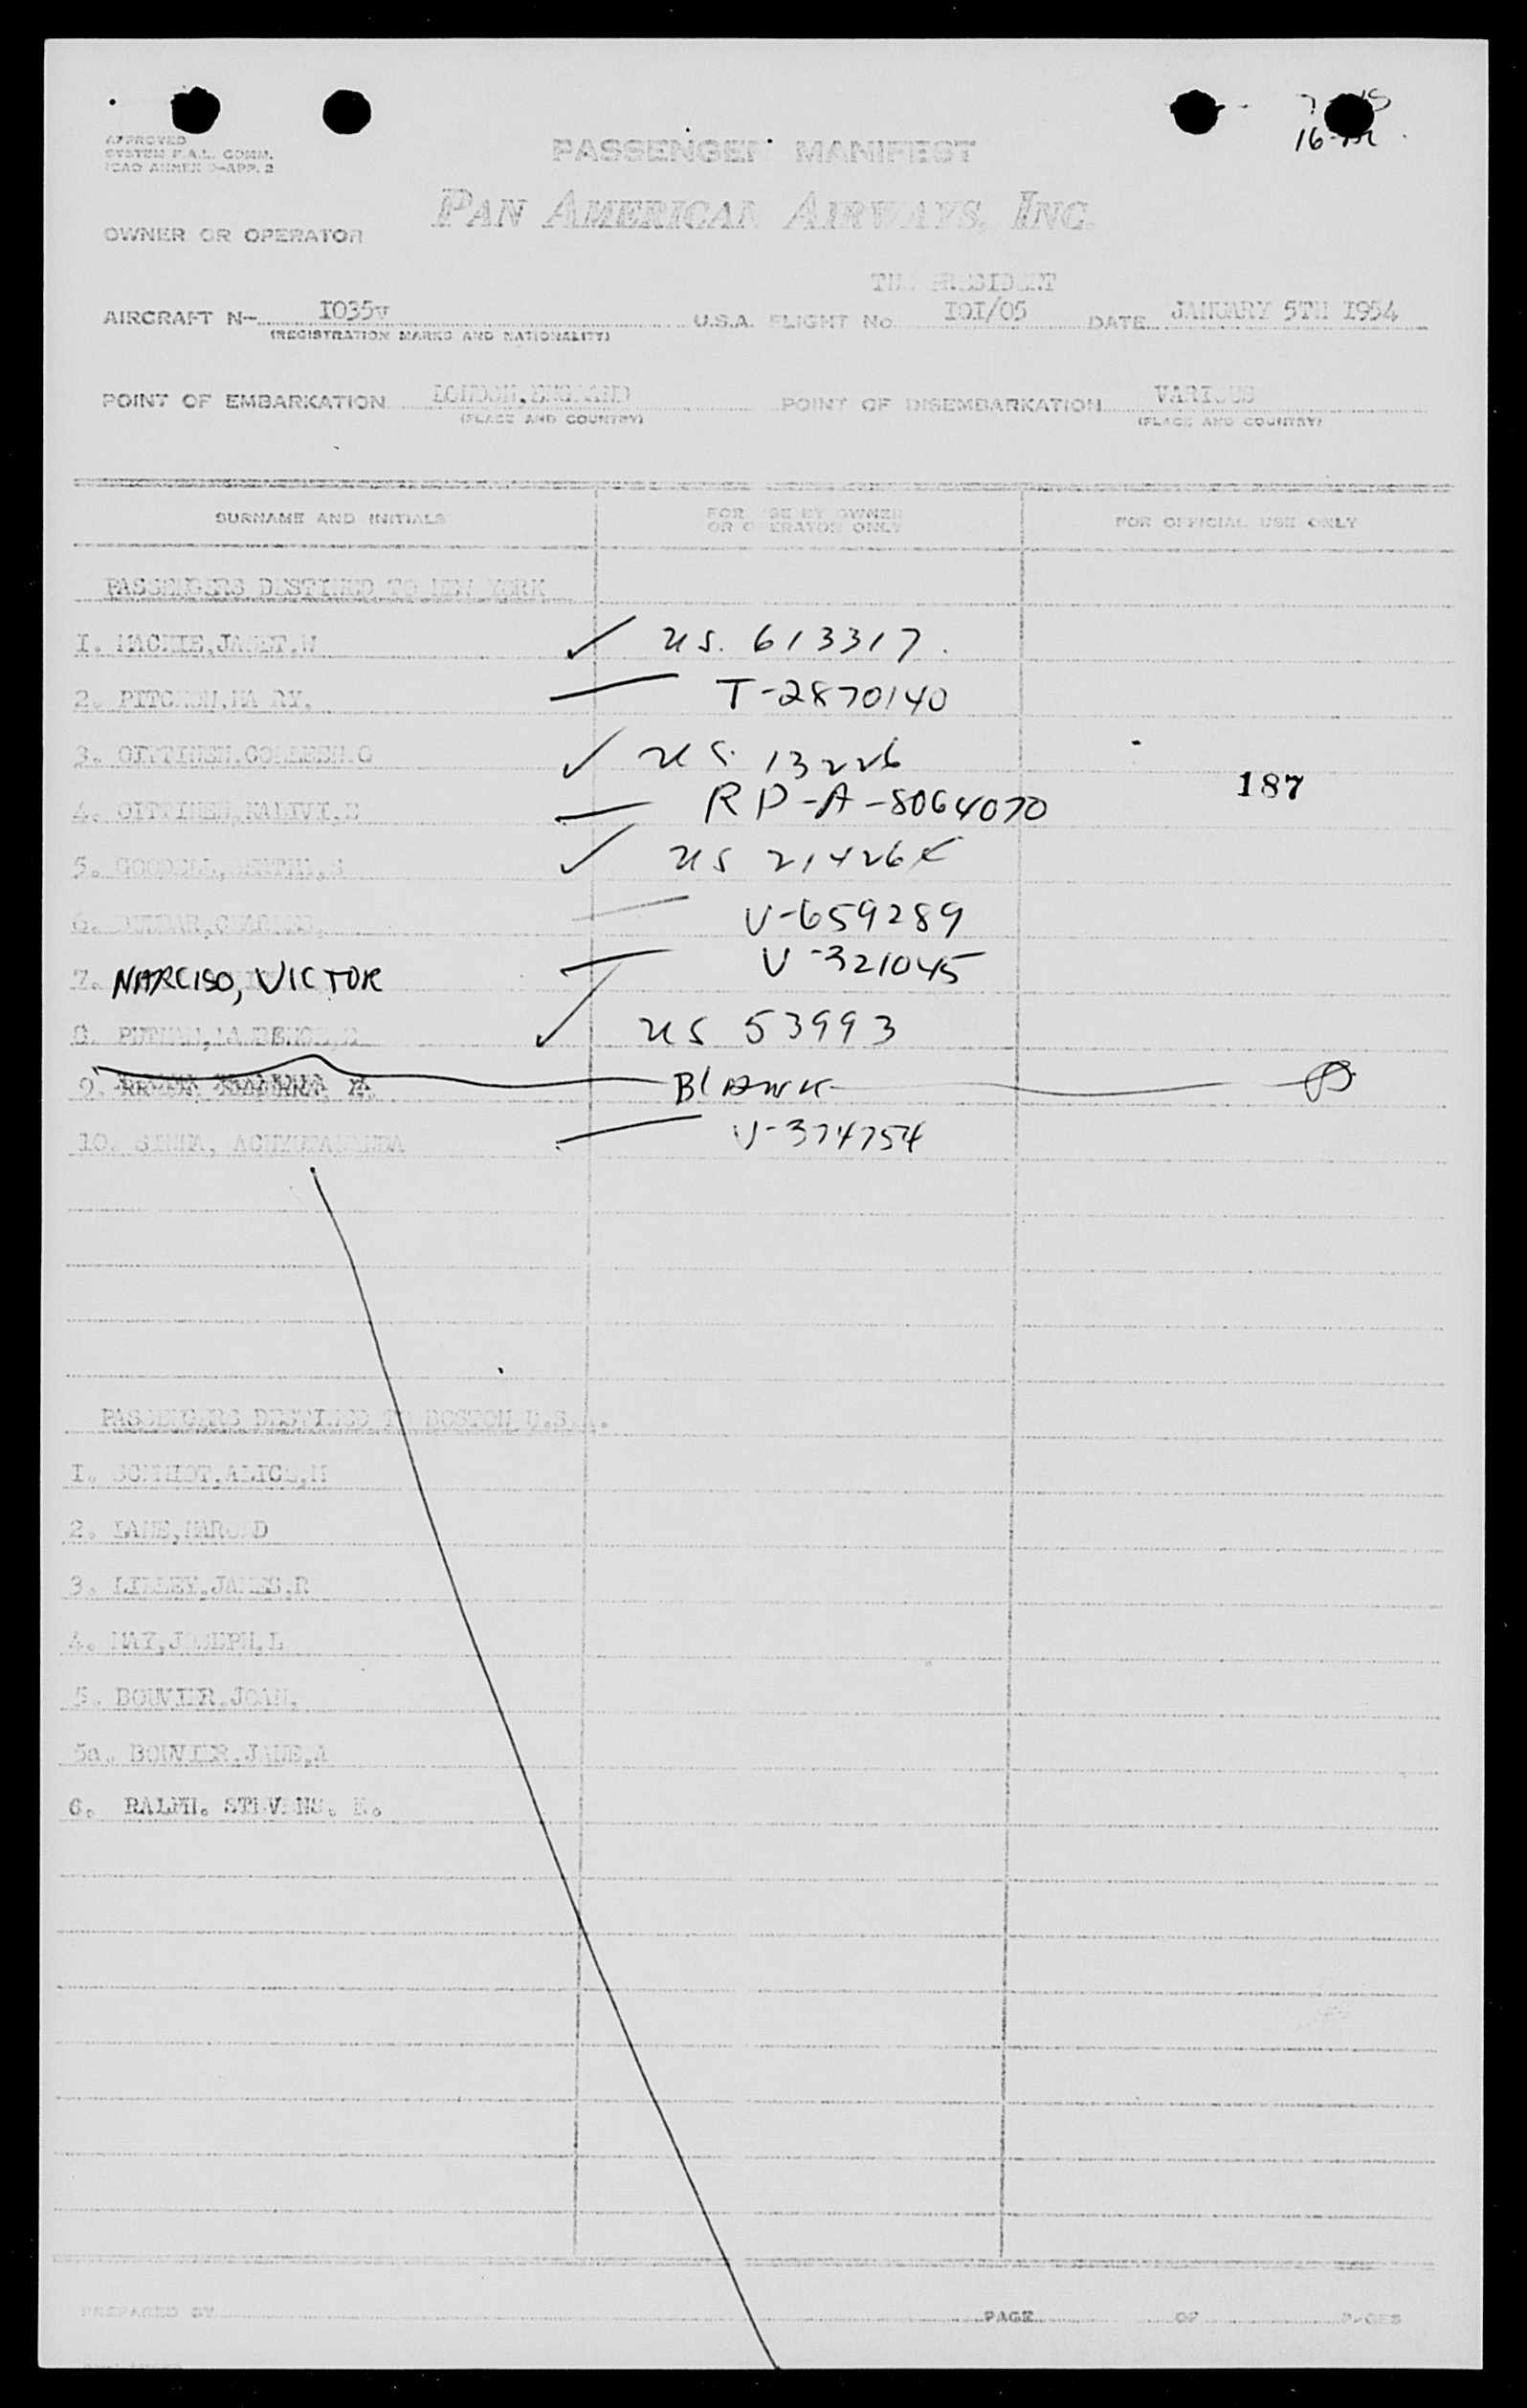 16-
APPROVED
SYSTEM F.A.L. COMM.
ICAO ANNEX 9-APP. 2
PASSENGER MANIFEST
PAN AMERICAN AIRWAYS, INC.
OWNER OR OPERATOR
THE PRESIDENT
AIRCRAFT N- 1035V U.S.A. FLIGHT No. 101/05 DATE JANUARY 5TH 1954
(REGISTRATION MARKS AND NATIONALITY)
POINT OF EMBARKATION LONDON, ENGLAND POINT OF DISEMBARKATION VARIOUS
(PLACE AND COUNTRY) (PLACE AND COUNTRY)
SURNAME AND INITIALS FOR USE BY OWNER OR OPERATOR ONLY FOR OFFICIAL USE ONLY
PASSENGERS DESTINED TO NEW YORK
1. MACKIE, JANET.W ✓ US. 613317.
2. T-2870140
3. OITTINEN, COLLEEN.G ✓ US. 13226
187
4. OITTINEN, KALEVI, RP-A-8064070
5. ✓ US 21426
6. V-659289
7. NARCISO, VICTOR V-321045
8. ✓ US 53993
9. BLANK
10. SINHA, ACHYUTANANDA V-374754
PASSENGERS DESTINED TO BOSTON U.S.A.
1. SCHMIDT, ALICE, M
2. LANE, HAROLD
3. LILLEY, JAMES.R
4. MAY, JOSEPH.L
5. BOUVIER, JOAN.
5a. BOUVIER, JANE, A
6. RALPH. STEVENS. E.
PREPARED BY PAGE OF PAGES